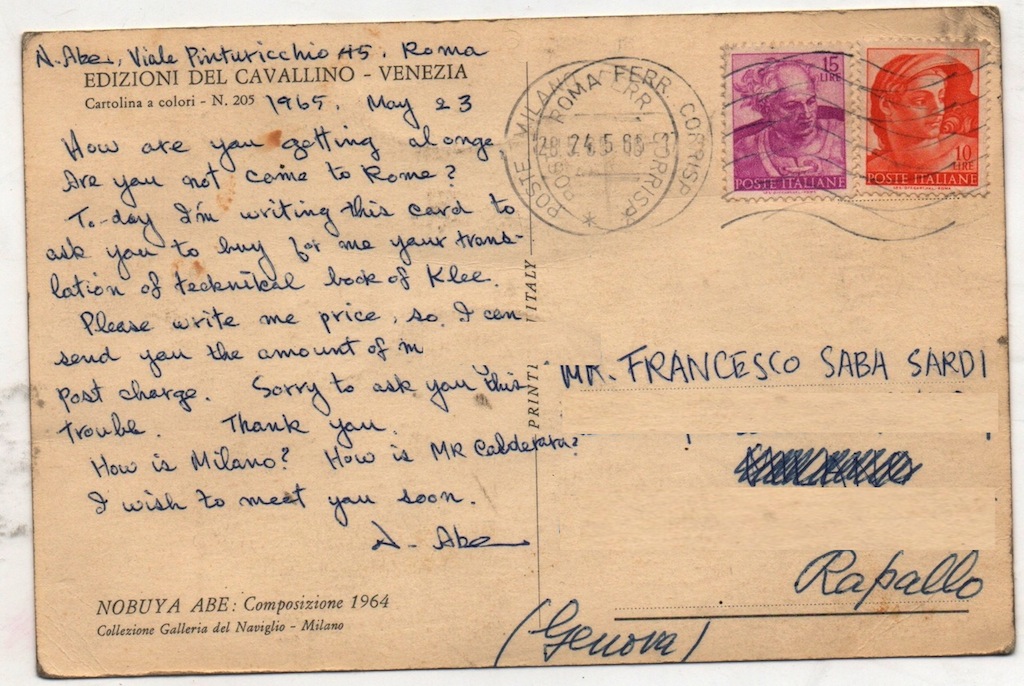 N. Abe, Viale Pinturicchio 45, Roma
EDIZIONI DEL CAVALLINO - VENEZIA
Cartolina a colori - N. 205
1965, May 23
How are you getting alonge,
Are you not come to Rome?
To-day I'm writing this card to
ask you to buy for me your trans-
lation of technikal book of Klee.
Please write me price, so, I can
send you the amount of in
post charge. Sorry to ask you this
trouble. Thank you.
How is Milano? How is MR Calderara?
I wish to meet you soon.
N. Abe
NOBUYA ABE: Composizione 1964
Collezione Galleria del Naviglio - Milano
PRINTI ITALY
POSTE MILANO FERR. CORRISP.
ROMA FERR.
24.5.65
15 LIRE
POSTE ITALIANE
10 LIRE
POSTE ITALIANE
MR. FRANCESCO SABA SARDI
Rapallo
(Genova)